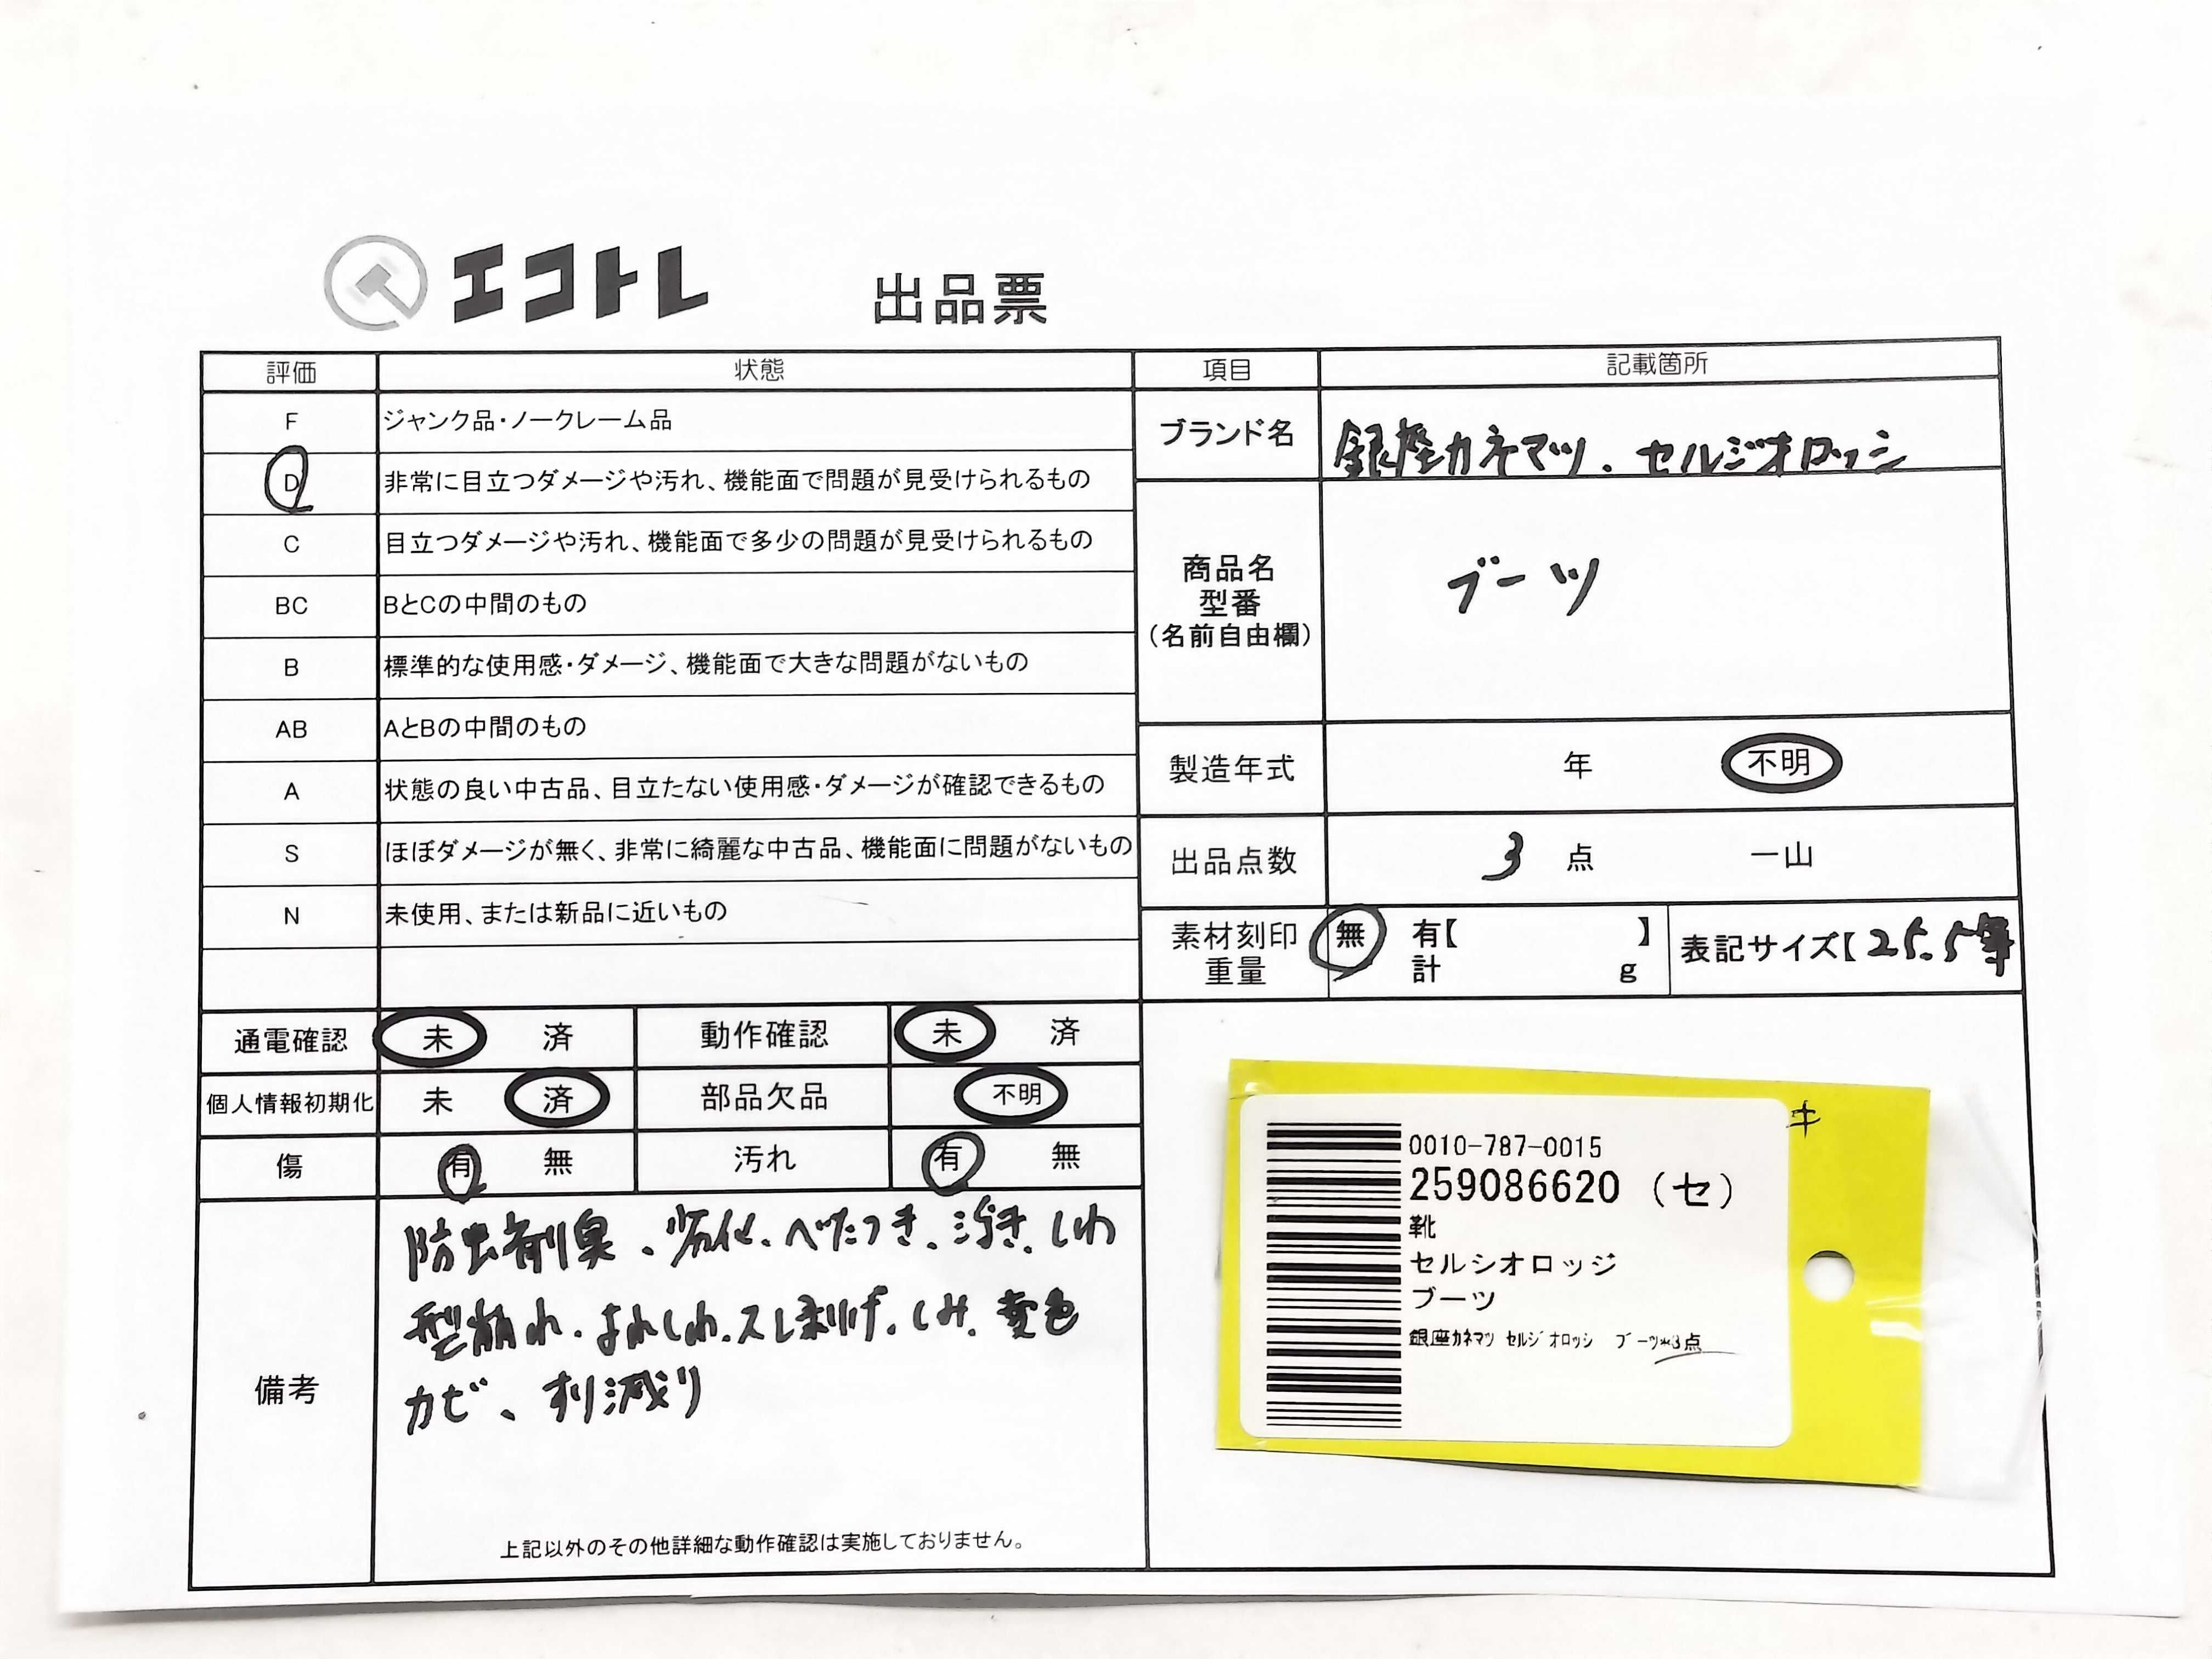 エコトレ 出品票
評価 状態 項目 記載箇所
F ジャンク品・ノークレーム品
D 非常に目立つダメージや汚れ、機能面で問題が見受けられるもの
C 目立つダメージや汚れ、機能面で多少の問題が見受けられるもの
BC BとCの中間のもの
B 標準的な使用感・ダメージ、機能面で大きな問題がないもの
AB AとBの中間のもの
A 状態の良い中古品、目立たない使用感・ダメージが確認できるもの
S ほぼダメージが無く、非常に綺麗な中古品、機能面に問題がないもの
N 未使用、または新品に近いもの
ブランド名 銀座カネマツ、セルジオロッシ
商品名
型番
(名前自由欄)
ブーツ
製造年式 年 不明
出品点数 3 点 一山
素材刻印 無 有【 】
重量 計 g
表記サイズ【 25.5等
通電確認 未 済 動作確認 未 済
個人情報初期化 未 済 部品欠品 不明
傷 有 無 汚れ 有 無
備考
防虫剤臭、劣化、べたつき、浮き、しわ
型崩れ、よれしわ、スレ剥げ、しみ、変色
カビ、すり減り
上記以外のその他詳細な動作確認は実施しておりません。
キ
0010-787-0015
259086620 (セ)
靴
セルシオロッジ
ブーツ
銀座カネマツ セルジオロッシ ブーツ*3点